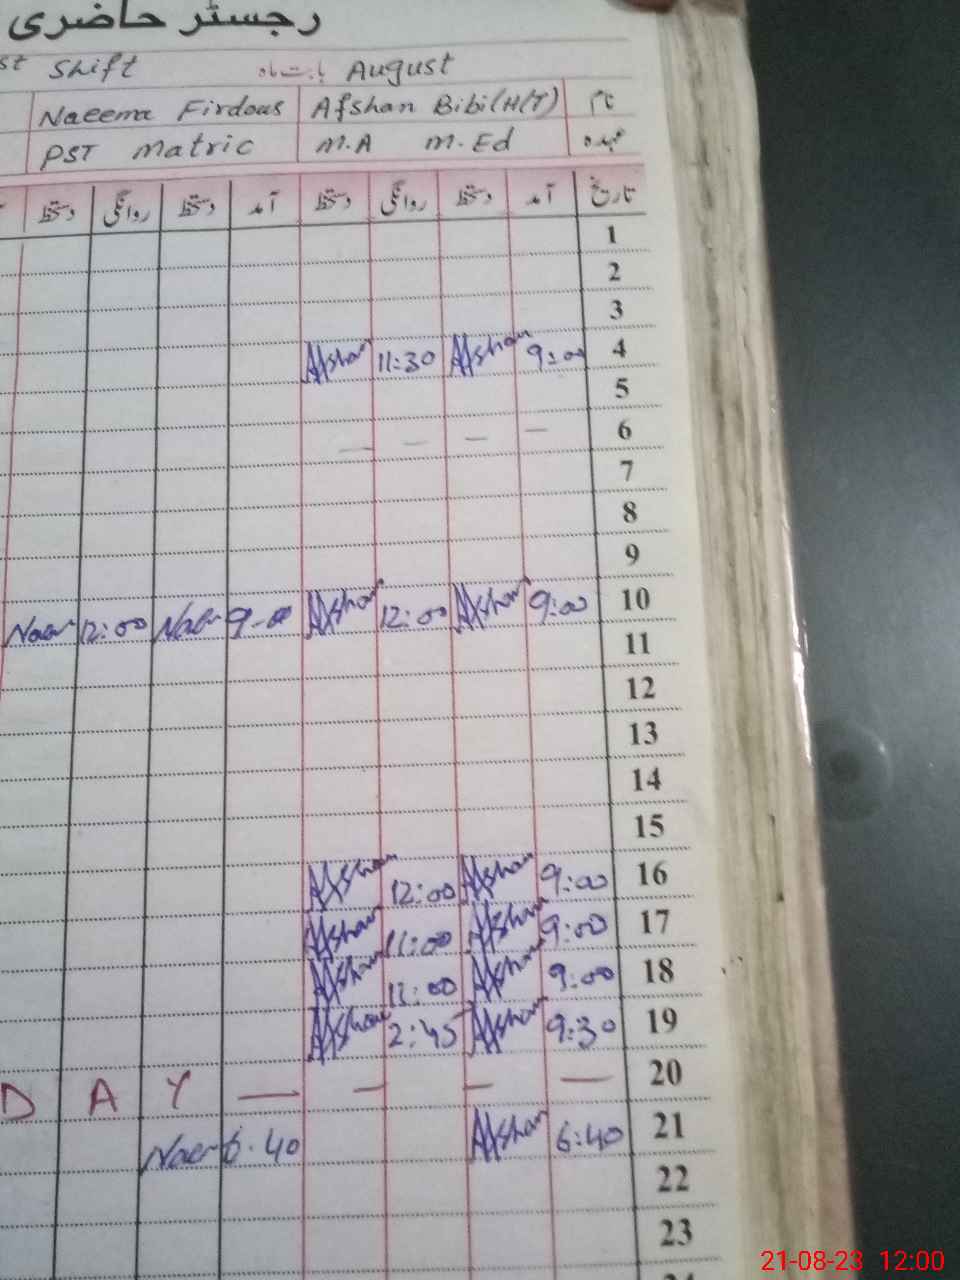 رجسٹر حاضری
st Shift بابت ماہ August
Naeema Firdous Afshan Bibi (H/T) نام
PST Matric M.A M.Ed عہدہ
دستخط روانگی دستخط آمد دستخط روانگی دستخط آمد تاریخ
1
2
3
Afshan 11:30 Afshan 9:00 4
5
— — — — 6
7
8
9
Naee 12:00 Naee 9-00 Afshan 12:00 Afshan 9:00 10
11
12
13
14
15
Afshan 12:00 Afshan 9:00 16
Afshan 11:00 Afshan 9:00 17
Afshan 12:00 Afshan 9:00 18
Afshan 2:45 Afshan 9:30 19
D A Y — — — — 20
Naee 6.40 Afshan 6:40 21
22
23
21-08-23 12:00